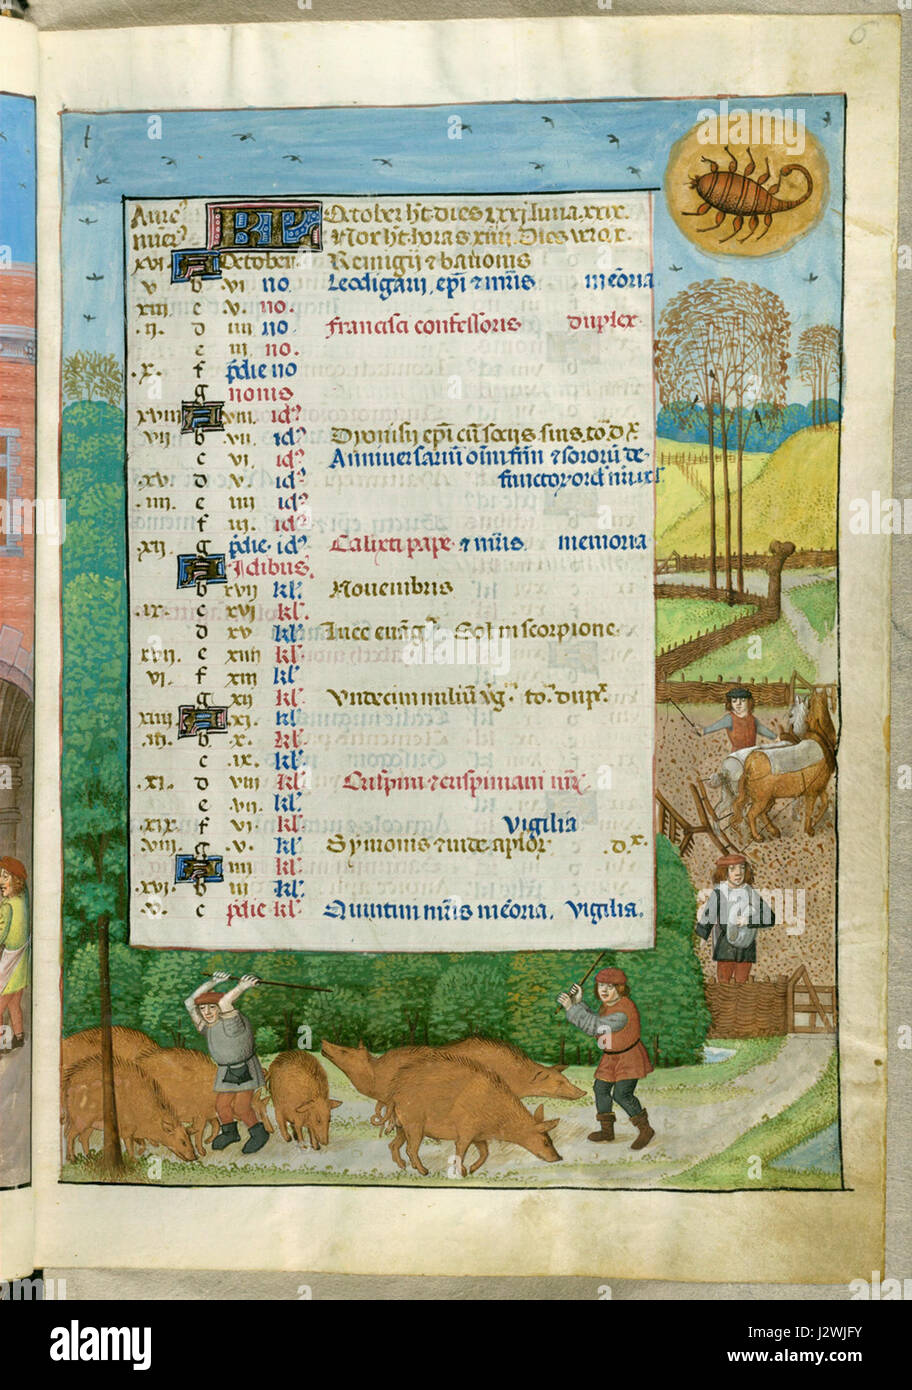 6
Aure⁹ KL October h't dies xxxi luna xxix.
nu'e⁹ Nox h't horas xiiii. Dies vero x.
xvi A October. Remigii & bauonis
v b vi no. Leodigarii, ep'i & m'ris memoria
xiii c v. no.
.ii. d iiii no Francisci confessoris duplex
e iii no.
.x. f p'die no
g nonis
xviii A viii. id⁹
vii b vii. id⁹ Dyonisii ep'i cu' sociis suis. to. dx
c vi. id⁹ Anniuersariu' o'im fr'm & sororu' de
xv d v. id⁹ functor ord'
iiii. e iiii id⁹
f iii. id⁹
.xii. g p'die. id⁹ Calixti pape & m'ris memoria
A Idibus.
b xvii kl' Nouembris
.ix. c xvj kl'.
d xv kl' Luce euang'. Sol in scorpione.
xvii. e xiiii kl'.
vi. f xiii kl'
g xii kl' Vndecim miliu' v'g' to. dup'x.
xiiii A xi. kl'.
.iii. b x. kl'.
c .ix. kl'.
.xi. d viii kl' Crispini & crispiniani m'r'
e vii. kl'.
xix. f vi. kl'. Vigilia
viii. g v. kl'. Symonis & iude ap'lor' .dx.
A iiii kl'.
.xvi. b iii kl'.
v. c p'die kl'. Quintini m'ris me'oria. vigilia.
alamy
Image ID: 2J2WJFY
www.alamy.com